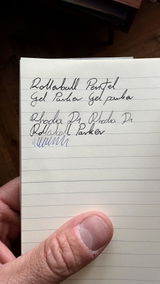 Rollerball Pentel
Gel Parker Gel parker
Rhodia Dr Rhodia Dr
Rollerball Parker